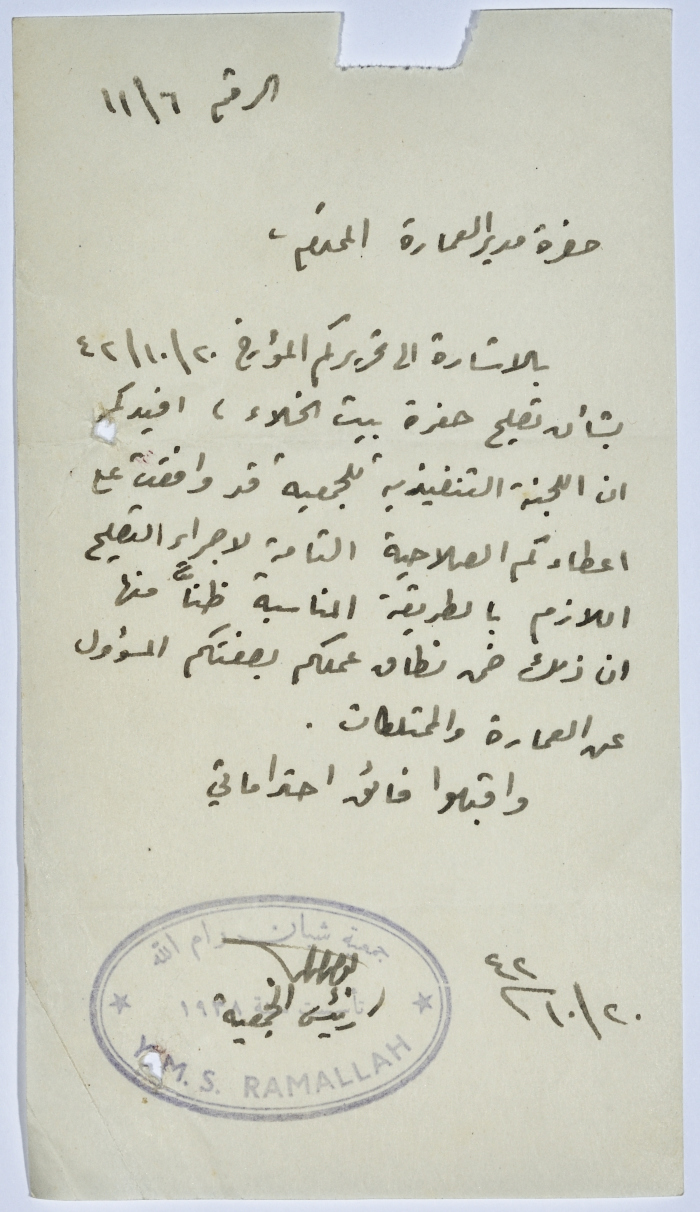 الرقم ١١/٦
حضرة مدير العمارة المحترم،
بالاشارة الى تحريركم المؤرخ ٤٢/١٠/٢٠
بشأن تصليح حفرة بيت الخلاء ، افيدكم
ان اللجنة التنفيذية للجمعية قد وافقت على
اعطاءكم الصلاحية التامة لاجراء التصليح
اللازم بالطريقة المناسبة ظناً منها
ان ذلك ضمن نطاق عملكم بصفتكم المسؤول
عن العمارة والممتلكات .
واقبلوا فائق احتراماتي
٤٢/١٠/٢٠
جمعية شبان رام الله
رئيس الجمعية
سنة ١٩٣٨
Y.M.S. RAMALLAH